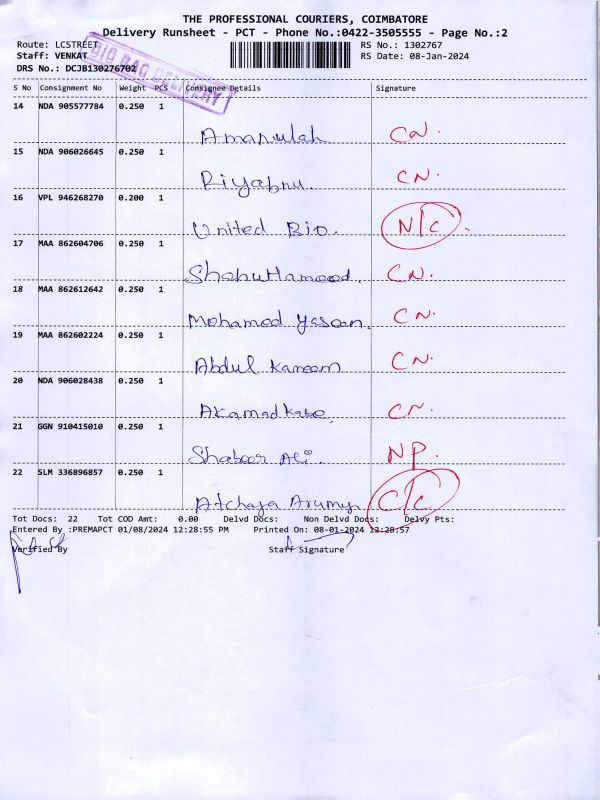 THE PROFESSIONAL COURIERS, COIMBATORE
Delivery Runsheet - PCT - Phone No.:0422-3505555 - Page No.:2
Route: LCSTREET RS No.: 1302767
Staff: VENKAT RS Date: 08-Jan-2024
DRS No.: DCJB130276702
BIG BAG DELIVERY
S No Consignment No Weight PCS Consignee Details Signature
14 NDA 905577784 0.250 1
Amanulah CN.
15 NDA 906026645 0.250 1
Riyabnu. CN.
16 VPL 946268270 0.200 1
United Bio. N/C
17 MAA 862604706 0.250 1
ShahulHameed. CN.
18 MAA 862612642 0.250 1
Mohamed Yaseen. CN.
19 MAA 862602224 0.250 1
Abdul Kareem CN.
20 NDA 906028438 0.250 1
CN.
21 GGN 910415010 0.250 1
Shabeer Ali. NP.
22 SLM 336896857 0.250 1
Atchaya C/C
Tot Docs: 22 Tot COD Amt: 0.00 Delvd Docs: Non Delvd Docs: Delvy Pts:
Entered By :PREMAPCT 01/08/2024 12:28:55 PM Printed On: 08-01-2024 12:28:57
Verified By Staff Signature